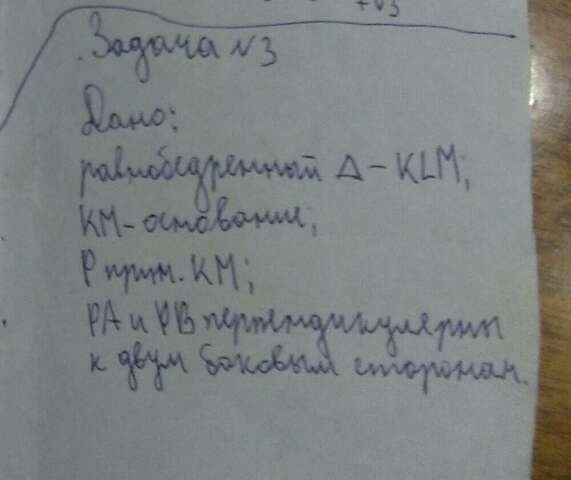 +√3
Задача №3
Дано:
равнобедренный Δ - KLM;
KM - основание;
P прин. KM;
PA и PB перпендикулярны
к двум боковым сторонам.